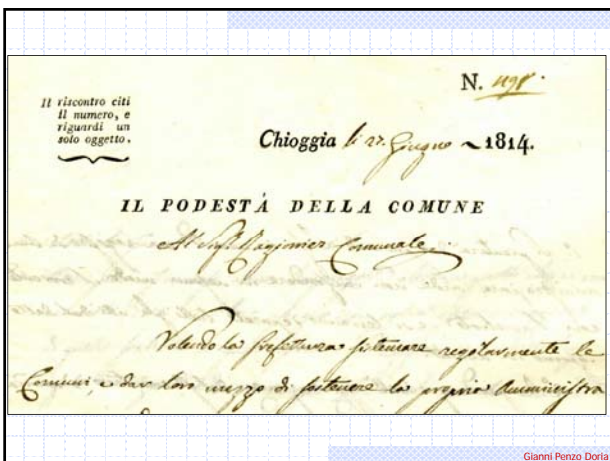 N. 498.
Il riscontro citi
il numero, e
riguardi un
solo oggetto.
Chioggia li 27. Giugno 1814.
IL PODESTÀ DELLA COMUNE
Al Sig.r Ragionier Comunale.
Volendo la Prefettura sistemare regolarmente le
Comuni, e dar loro mezzo di sostenere la propria Amministra
Gianni Penzo Doria